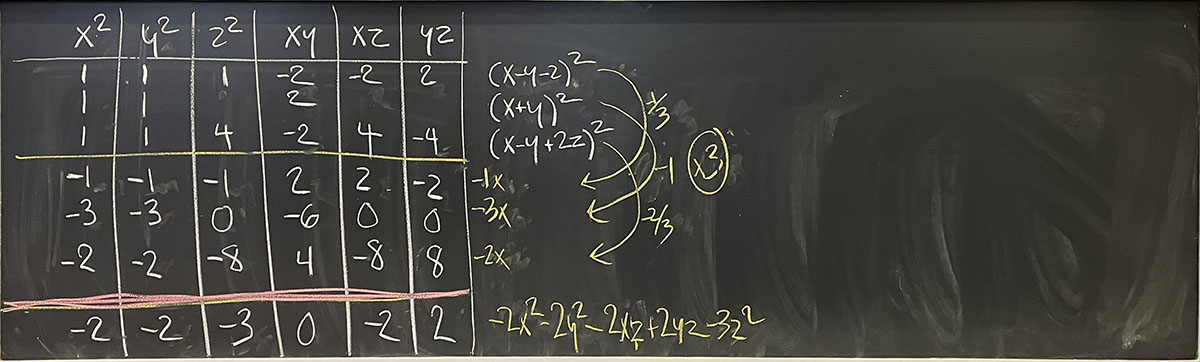 x² y² z² xy xz yz
1 1 1 -2 -2 2 (x-y-z)²
1 1 2 (x+y)² -1/3
1 1 4 -2 4 -4 (x-y+2z)²
-1 -1 -1 2 2 -2 -1x -1 x3
-3 -3 0 -6 0 0 -3x -2/3
-2 -2 -8 4 -8 8 -2x
-2 -2 -3 0 -2 2 -2x²-2y²-2xz+2yz-3z²